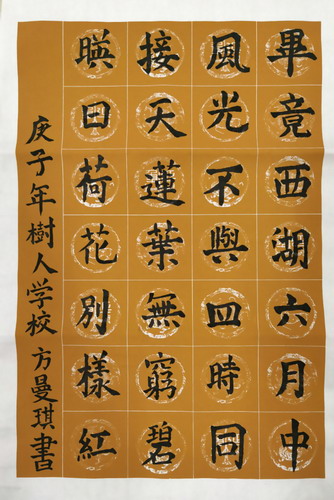 畢竟西湖六月中
風光不與四時同
接天蓮葉無窮碧
暎日荷花別樣紅
庚子年樹人学校方曼琪書